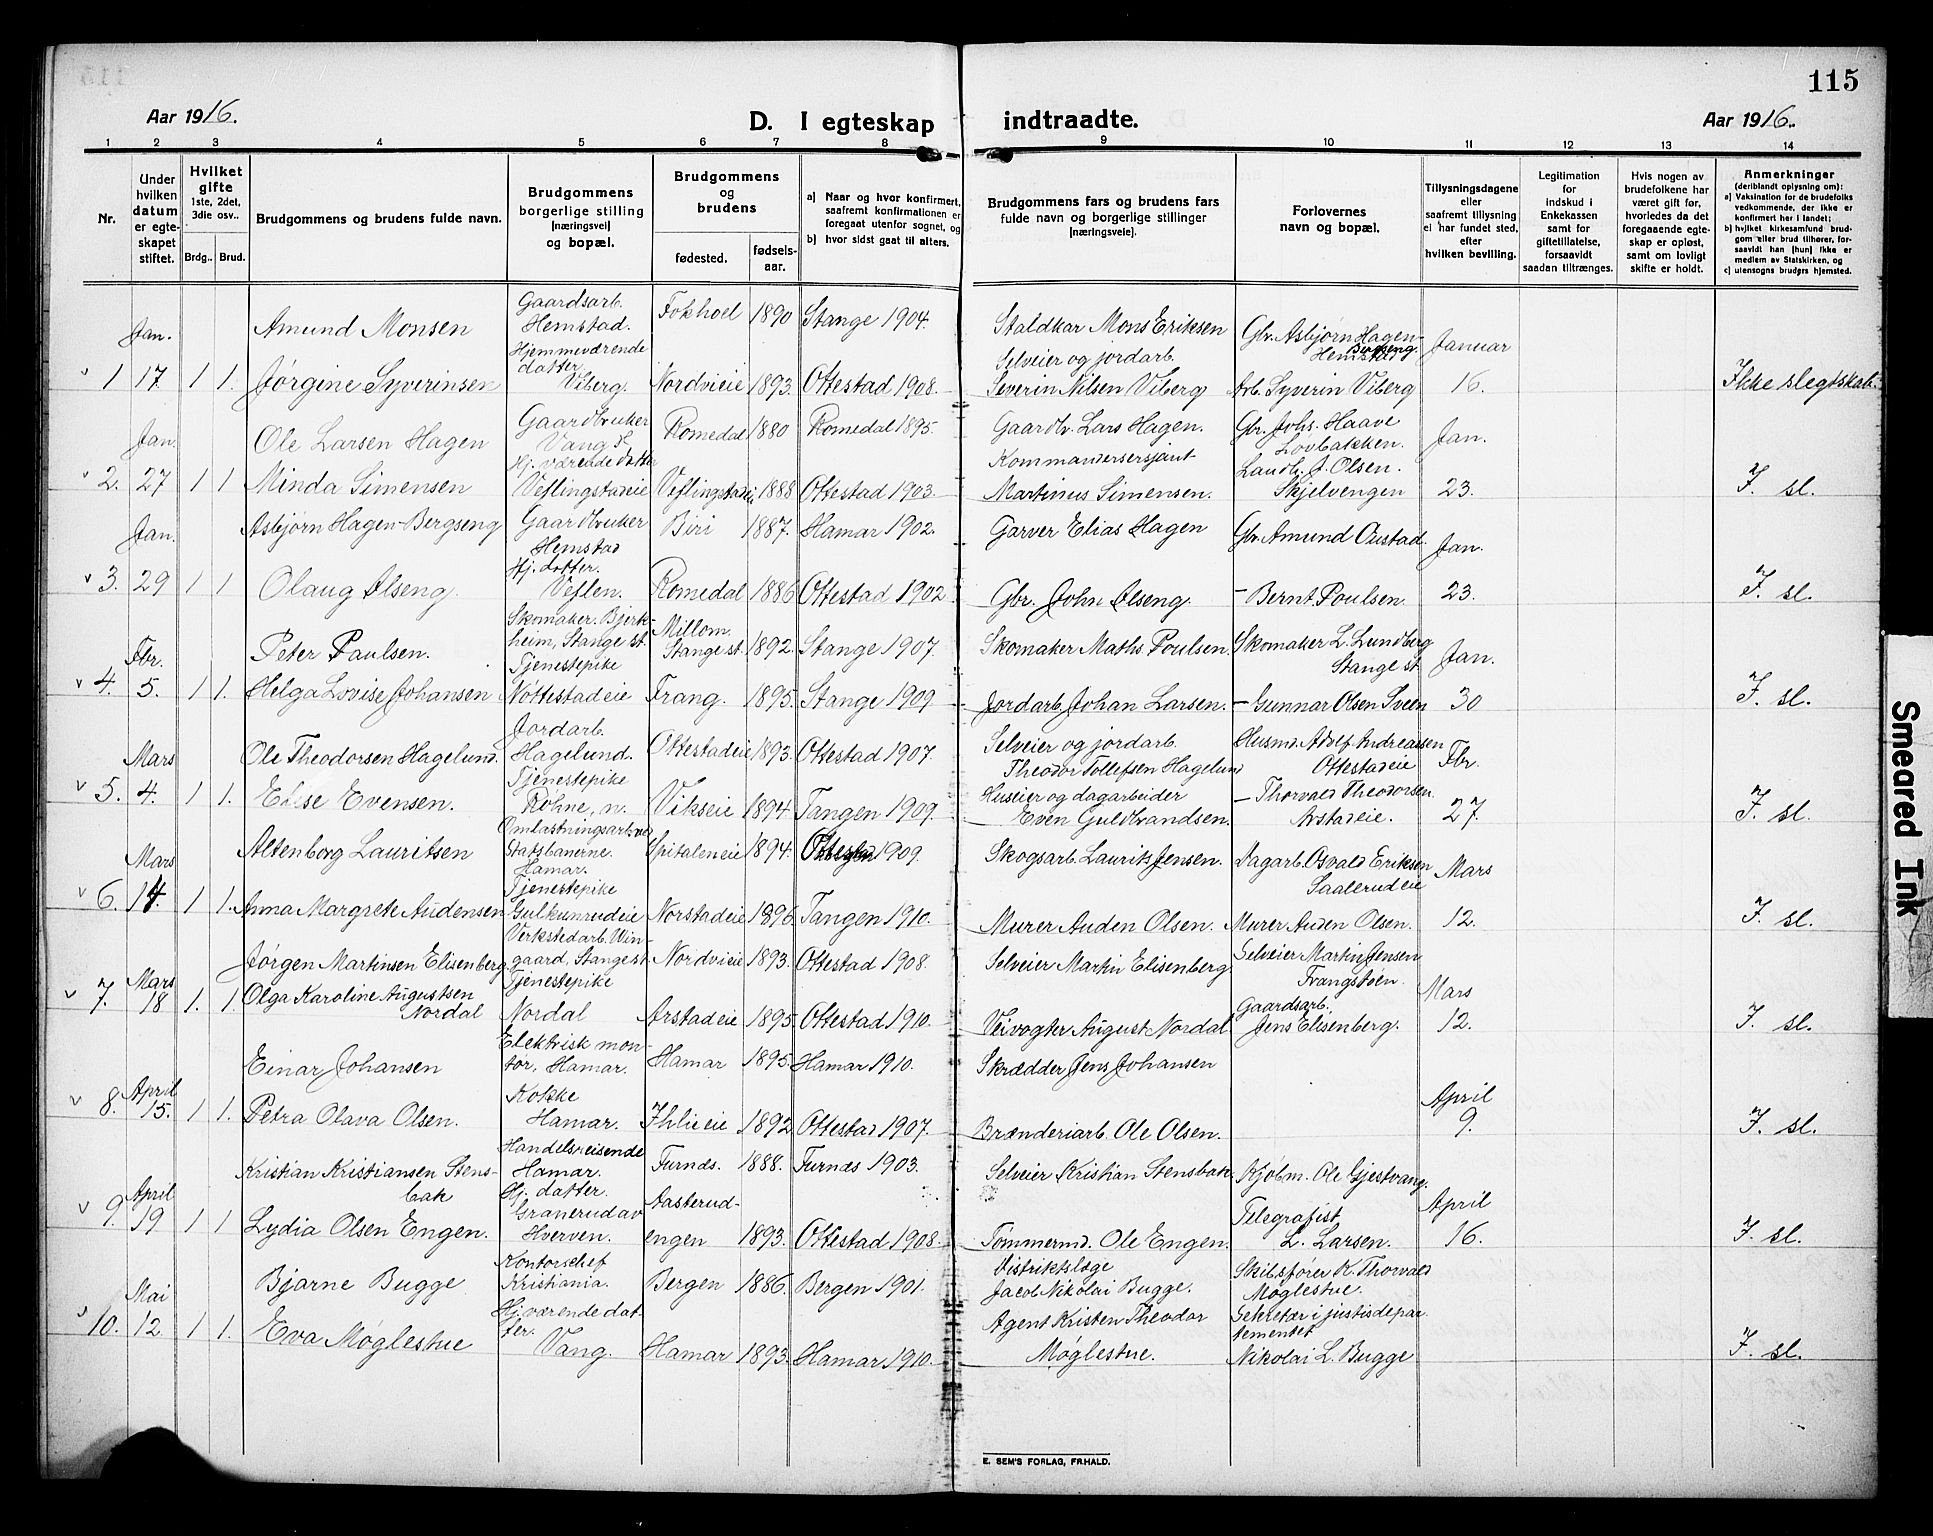 115
Aar 1916.
D. I egteskap indtraadte.
Aar 1916.
1 2 3 4 5 6 7 8 9 10 11 12 13 14
Nr.
Under hvilken datum er egteskapet stiftet.
Hvilket gifte 1ste, 2det, 3die osv..
Brdg.. Brud.
Brudgommens og brudens fulde navn.
Brudgommens borgerlige stilling [næringsvei] og bopæl.
Brudgommens og brudens
fødested.
fødselsaar.
a) Naar og hvor konfirmert, saafremt konfirmationen er foregaat utenfor sognet, og
b) hvor sidst gaat til alters.
Brudgommens fars og brudens fars fulde navn og borgerlige stillinger [næringsveie].
Forlovernes navn og bopæl.
Tillysningsdagene eller saafremt tillysning ei har fundet sted, efter hvilken bevilling.
Legitimation for indskud i Enkekassen samt for giftetillatelse, forsaavidt saadan tiltrænges.
Hvis nogen av brudefolkene har været gift før, hvorledes da det foregaaende egteskap er opløst, samt om lovligt skifte er holdt.
Anmerkninger (deriblandt oplysning om):
a) Vaksination for de brudefolks vedkommende, der ikke er konfirmert her i landet;
b) hvilket kirkesamfund brudgom eller brud tilhører, forsaavidt han [hun] ikke er medlem av Statskirken, og
c) utensogns brudgers hjemsted.
Jan. Amund Monsen Gaardsarb. Hemstad. Fokhoel 1890 Stange 1904. Staldkar Mons Eriksen Gbr. Asbjørn Hagen-Bergseng Hemstad Januar
1 17 1 1. Jørgine Syverinsen Hjemmeværende datter Viberg. Nordvieie 1893. Ottestad 1908. Selveier og jordarb. Severin Nilsen Viberg Arb. Syverin Viberg 16. Ikke slegtskab.
Jan. Ole Larsen Hagen Gaardbruker Vang s. Romedal 1880 Romedal 1895. Gaardbr. Lars Hagen. Gbr. Johs. Haave Lovbakken. Jan.
2. 27 1 1 Minda Simensen Hj. værende datter Veflingstadeie Veflingstadeie 1888 Ottestad 1903. Kommandersersjant Martinus Simensen. Landh. J. Olsen. Skjelvengen 23. I. sl.
Jan. Asbjørn Hagen-Bergseng Gaardbruker Hemstad Biri 1887. Hamar 1902. Garver Elias Hagen Gbr. Amund Oustad. Jan.
3. 29 1 1 Olaug Ilseng. Hj. datter. Veflen. Romedal 1886 Ottestad 1902. Gbr. John Ilseng. - Bernt Poulsen. 23. I. sl.
Fbr. Peter Paulsen. Skomaker. Bjerkheim, Stange st. Millom. Stange st. 1892. Stange 1907. Skomaker Maths. Poulsen. Skomaker L. Lundberg Stange st. Jan.
4. 5. 1 1. Helga Lovise Johansen Tjenestepike Nøttestadeie Frang. 1895. Stange 1909. Jordarb. Johan Larsen. - Gunnar Olsen Sveen 30 I. sl.
Mars Ole Theodorsen Hagelund. Jordarb. Hagelund. Ottestadeie 1893. Ottestad 1907. Selveier og jordarb. Theodor Tollefsen Hagelund Husmd. Adolf Andreassen Ottestadeie Fbr.
5. 4. 1 1. Elise Evensen. Tjenestepike Røhne, n. Vikseie 1894. Tangen 1909. Huseier og dagarbeider Even Guldbrandsen. - Thorvald Theodorsen. Arstadeie. 27. I. sl.
Mars Altenborg Lauritsen Omlastningsarb. ved Statsbanerne. Hamar. Spitaleneie 1894. 1909. Skogsarb. Laurits Jensen. Dagarb. Osvald Eriksen Saaterudeie Mars
6. 14. 1 1. Anna Margrete Audensen Tjenestepike Gulkunrudeie Norstadeie 1896. Tangen 1910. Murer Auden Olsen. Murer Auden Olsen. 12. I. sl.
Mars Jørgen Martinsen Elisenberg. Verkstedarb. Wingaard, Stange st. Nordvieie 1893. Ottestad 1908. Selveier Martin Elisenberg. Selveier Martin Jensen Frangstøen. Mars
7. 18 1. 1. Olga Karoline Augustsen Nordal Tjenestepike Nordal Arstadeie 1895. Ottestad 1910. Veivogter August Nordal Gaardsarb. Jens Elisenberg. 12. I. sl.
April Einar Johansen Elektrisk montør, Hamar. Hamar 1895. Hamar 1910. Skrædder Jens Johansen
8. 15. 1 1. Petra Olava Olsen. Kokke Hamar. Ihlieie 1892 Ottestad 1907. Brænderiarb. Ole Olsen. April 9. I. sl.
April Kristian Kristiansen Stensbak Handelsreisende Hamar. Furnds. 1888. Furnæs 1903. Selveier Kristian Stensbak. Kjøbm. Ole Gjestvang. April
9. 19 1 1 Lydia Olsen Engen. Hj. datter. Granerud av Hverven. Aasterudengen 1893. Ottestad 1908. Tømmermd. Ole Engen. Telegrafist L. Larsen. 16. I. sl.
Mai Bjarne Bugge Kontorschef Kristiania. Bergen 1886. Bergen 1901. Distriktslæge Jacob Nikolai Bugge. Skibsfører K. Thorvald Møglestue.
10. 12 1 1. Eva Møglestue Hj. værende datter. Vang. Hamar 1893. Hamar 1910. Agent Kristen Theodor Møglestue. Sekretær i justisdepartementet Nikolai L. Bugge I. sl.
E. SEM'S FORLAG, FR.HALD.
Smeared Ink